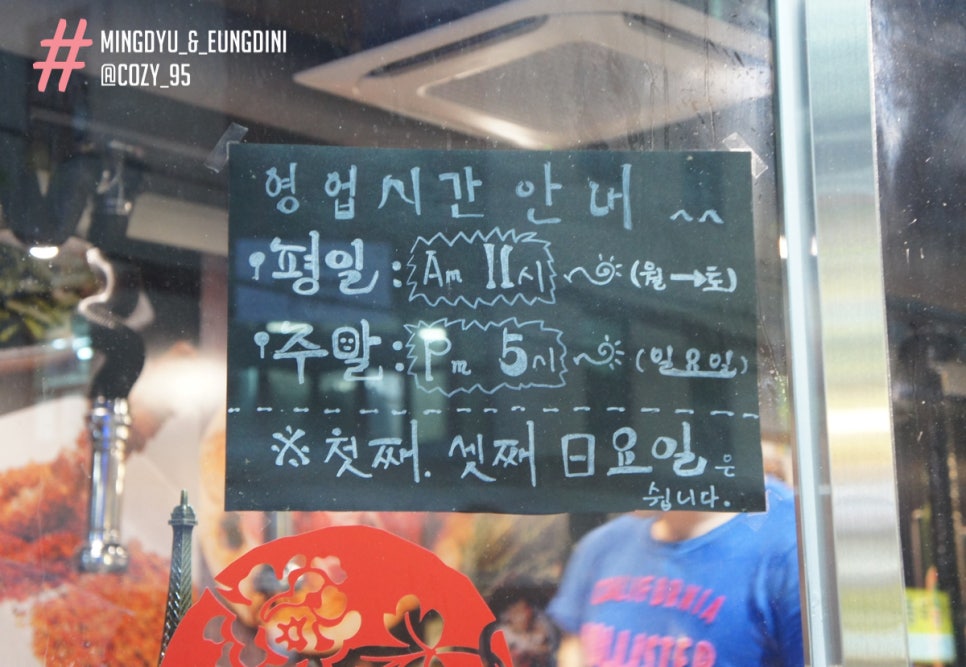 # MINGDYU_&_EUNGDINI
@COZY_95
영업시간 안내 ^^
평일 : Am 11시 ~ (월→토)
주말 : Pm 5시 ~ (일요일)
※ 첫째. 셋째 日요일은
쉽니다.
CALIFORNIA
HOLLISTER